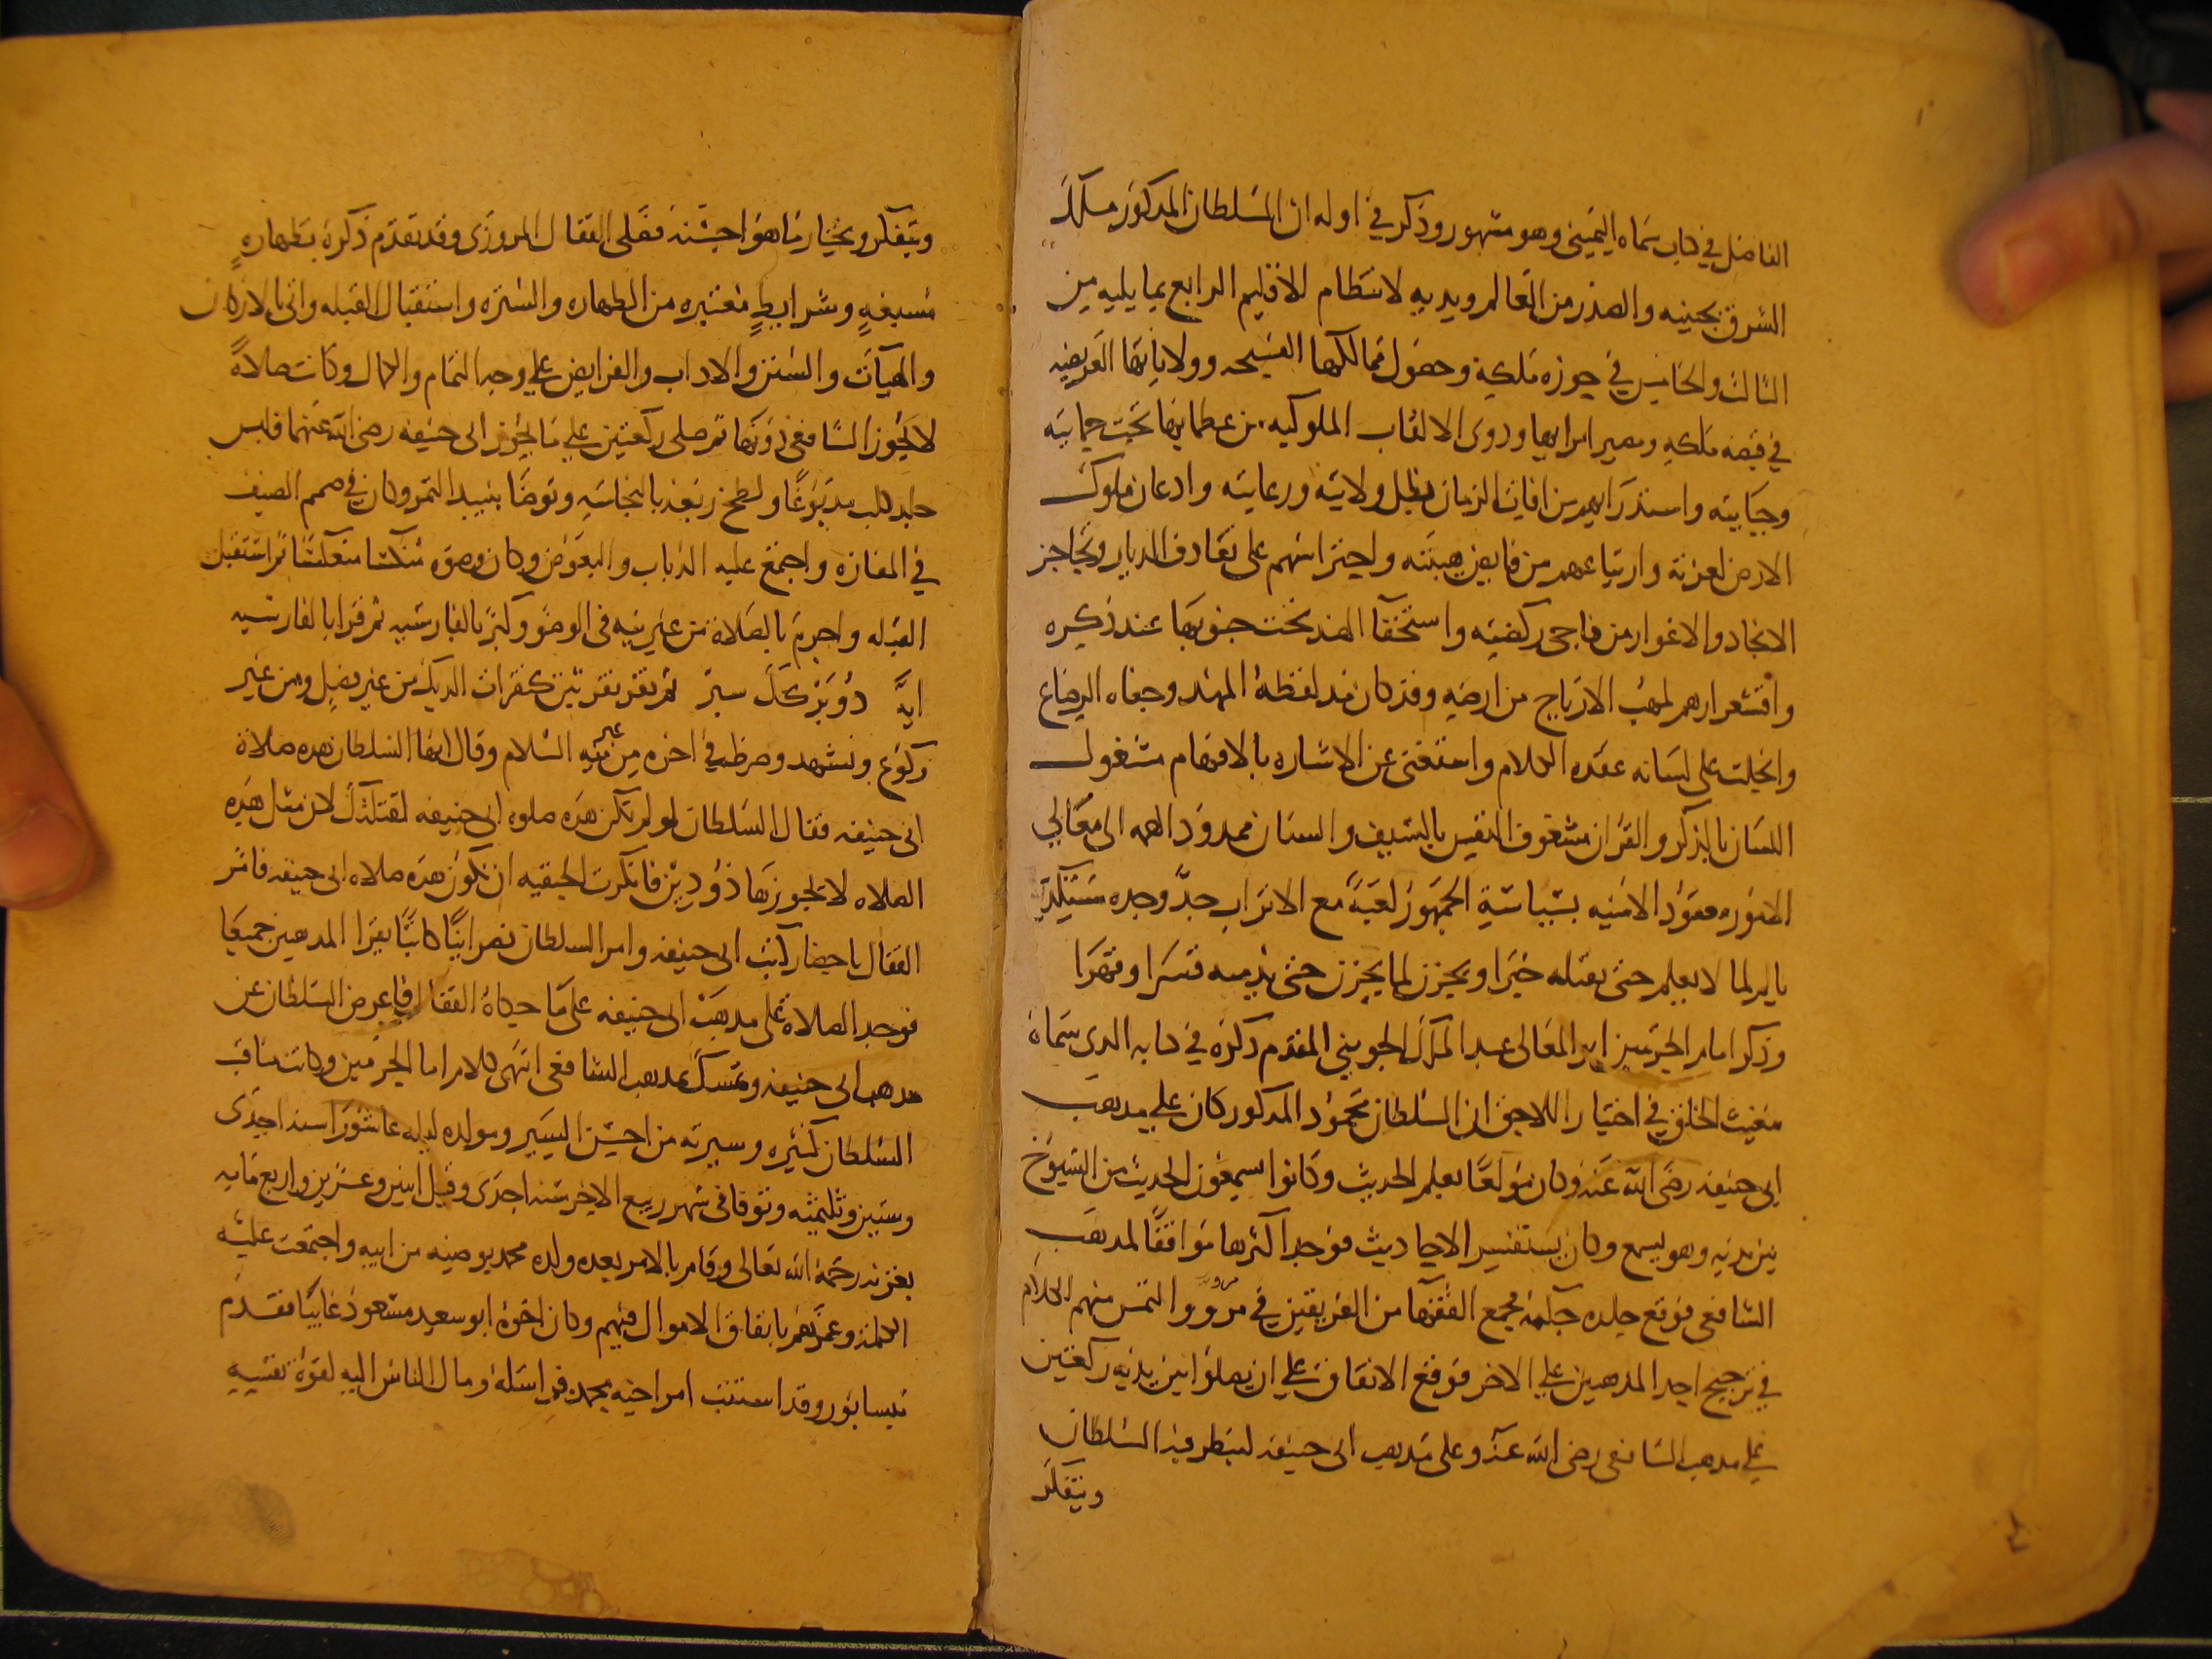 الفاضل في كتاب سماه اليميني وهو مشهور وذكر في اوله ان السلطان المذكور ملك
الشرق بجنبيه والصدر من العالم ويديه لانتظام الاقليم الرابع بما يليه من
الثالث والخامس في حوزه ملكه وحصول ممالكها الفسيحه وولاياتها العريضه
في قبضه ملكه ومصير امرايها وذوي الالقاب الملوكيه من عظمايها تحت حمايته
وجبايته واستدراايهم من افات الزمان بظل ولايته ورعايته واذعان ملوك
الارض لعزته وارتياعهم من فايض هيبته واحتراسهم على تقاذف الديار وتحاجز
الانجاد والاغوار من فاجي ركضته واستخفا الهند تحت جنوبها عند ذكره
واقشعرارهم لمهب الارياح من ارضه وقد كان مذ لفظه المهد وجفاه الرضاع
وانحلت على لسانه عقده الكلام واستغنى عن الاشاره بالافهام مشغول
اللسان بالذكر والقران مشغوف النفس بالسيف والسنان ممدود الهمه الى معالي
الامور معقود الامنيه بسياسة الجمهور لعبه مع الاتراب جد وجده مستكد
يالم لما لا يعلم حتى يقتله خبرا ويحزن لما يحزن حتى يدمثه قسرا وقهرا
وذكر امام الحرمين ابو المعالي عبد الملك الجويني المقدم ذكره في كتابه الذي سماه
مغيث الخلق في اختيار اللاحق ان السلطان محمود المذكور كان على مذهب
ابي حنيفه رضى الله عنه وكان مولعا بعلم الحديث وكانوا يسمعون الحديث من الشيوخ
بين يديه وهو يسمع وكان يستفسر الاحاديث فوجد اكثرها موافقا لمذهب
الشافعي فوقع في خلده حكه فجمع الفقها من الفريقين في مرو والتمس منهم الكلام
في ترجيح احد المذهبين على الاخر فوقع الاتفاق على ان يصلوا بين يديه ركعتين
على مذهب الشافعي رضى الله عنه وعلى مذهب ابي حنيفه لينظر فيه السلطان
ويتفكر
ويتفكر ويختار ما هو احسنه فصلى القفال المروزي وقد تقدم ذكره بطهاره
مسبغه وشرايط معتبره من الطهاره والستره واستقبال القبله واتى بالاركان
والهيات والسنن والاداب والفرايض على وجه التمام والكمال وكانت صلاة
لا يجوز الشافعي دونها ثم صلى ركعتين على ما يجوز ابي حنيفه رضى الله عنهما فلبس
جلد كلب مدبوغا ولطخ ربعه بالنجاسه وتوضا بنبيذ التمر وكان في صميم الصيف
في المفازه واجتمع عليه الذباب والبعوض وكان وضوه منكسا منعكسا ثم استقبل
القبله واحرم بالصلاة من غير نيه في الوضو وكبر بالفارسيه ثم قرا بالفارسيه
ايه دو برك سبز ثم نقر نقرتين كنقرات الديك من غير فصل ومن غير
ركوع وتشهد وضرط في اخره من غير نيه السلام وقال ايها السلطان هذه صلاة
ابي حنيفه فقال السلطان لو لم تكن هذه صلوه ابي حنيفه لقتلتك لان مثل هذه
الصلاه لا يجوزها ذو دين فانكرت الحنفيه ان تكون هذه صلاه ابي حنيفه فامر
القفال باحضار كتب ابي حنيفه وامر السلطان نصرانيا كاتبا يقرا المذهبين جميعا
فوجد الصلاه على مذهب ابي حنيفه على ما حكاه القفال فاعرض السلطان عن
مذهب ابي حنيفه وتمسك بمذهب الشافعي انتهى كلام امام الحرمين وكانت مناقب
السلطان كثيره وسيرته من احسن السير ومولده ليله عاشورا سنه احدى
وستين وثلثمئه وتوفا في شهر ربيع الاخر سنه احدى وقيل اثنين وعشرين واربع مايه
بغزنه رحمه الله تعالى وقام بالامر بعده ولده محمد بوصيه من ابيه واجتمعت عليه
الكلمه وعمرهم بانفاق الاموال فيهم وكان اخوه ابو سعيد مسعود غايبا فقدم
نيسابور وقد استتب امر اخيه محمد فراسله ومال الناس اليه لقوة نفسه